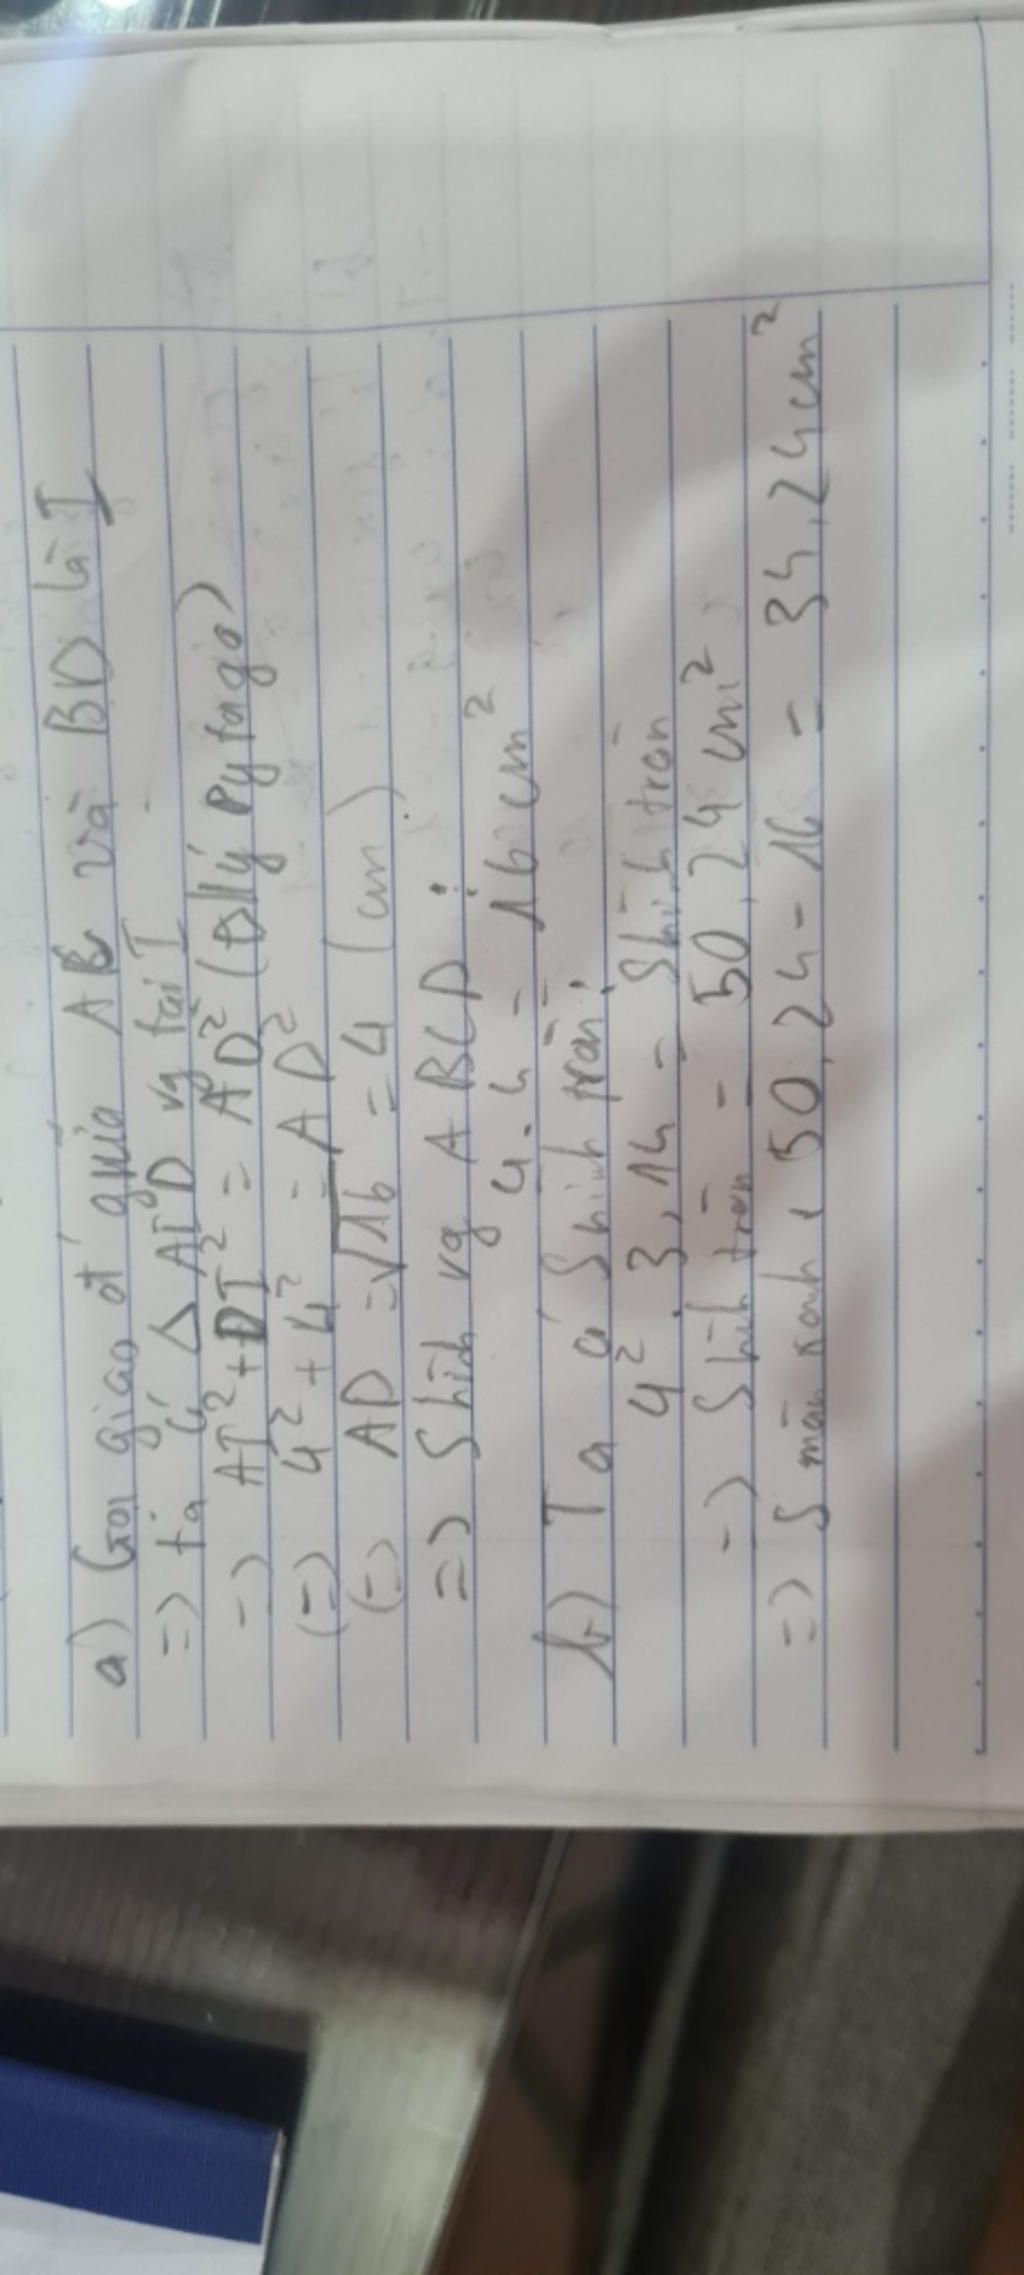 a) Gọi giao đ' giữa AC và BD là I
=> ta có Δ AID vg tại I
=> AI² + DI² = AD² (Đlý Pytago)
(=) 4² + 4² = AD²
(=) AD = √16 = 4 (cm)
=> Shình vg ABCD :
4 . 4 = 16 cm²
b) Ta có Shình tròn :
4² . 3,14 = Shình tròn
=> Shình tròn = 50,24 cm²
=> S màu xanh : 50,24 - 16 = 34,24 cm²